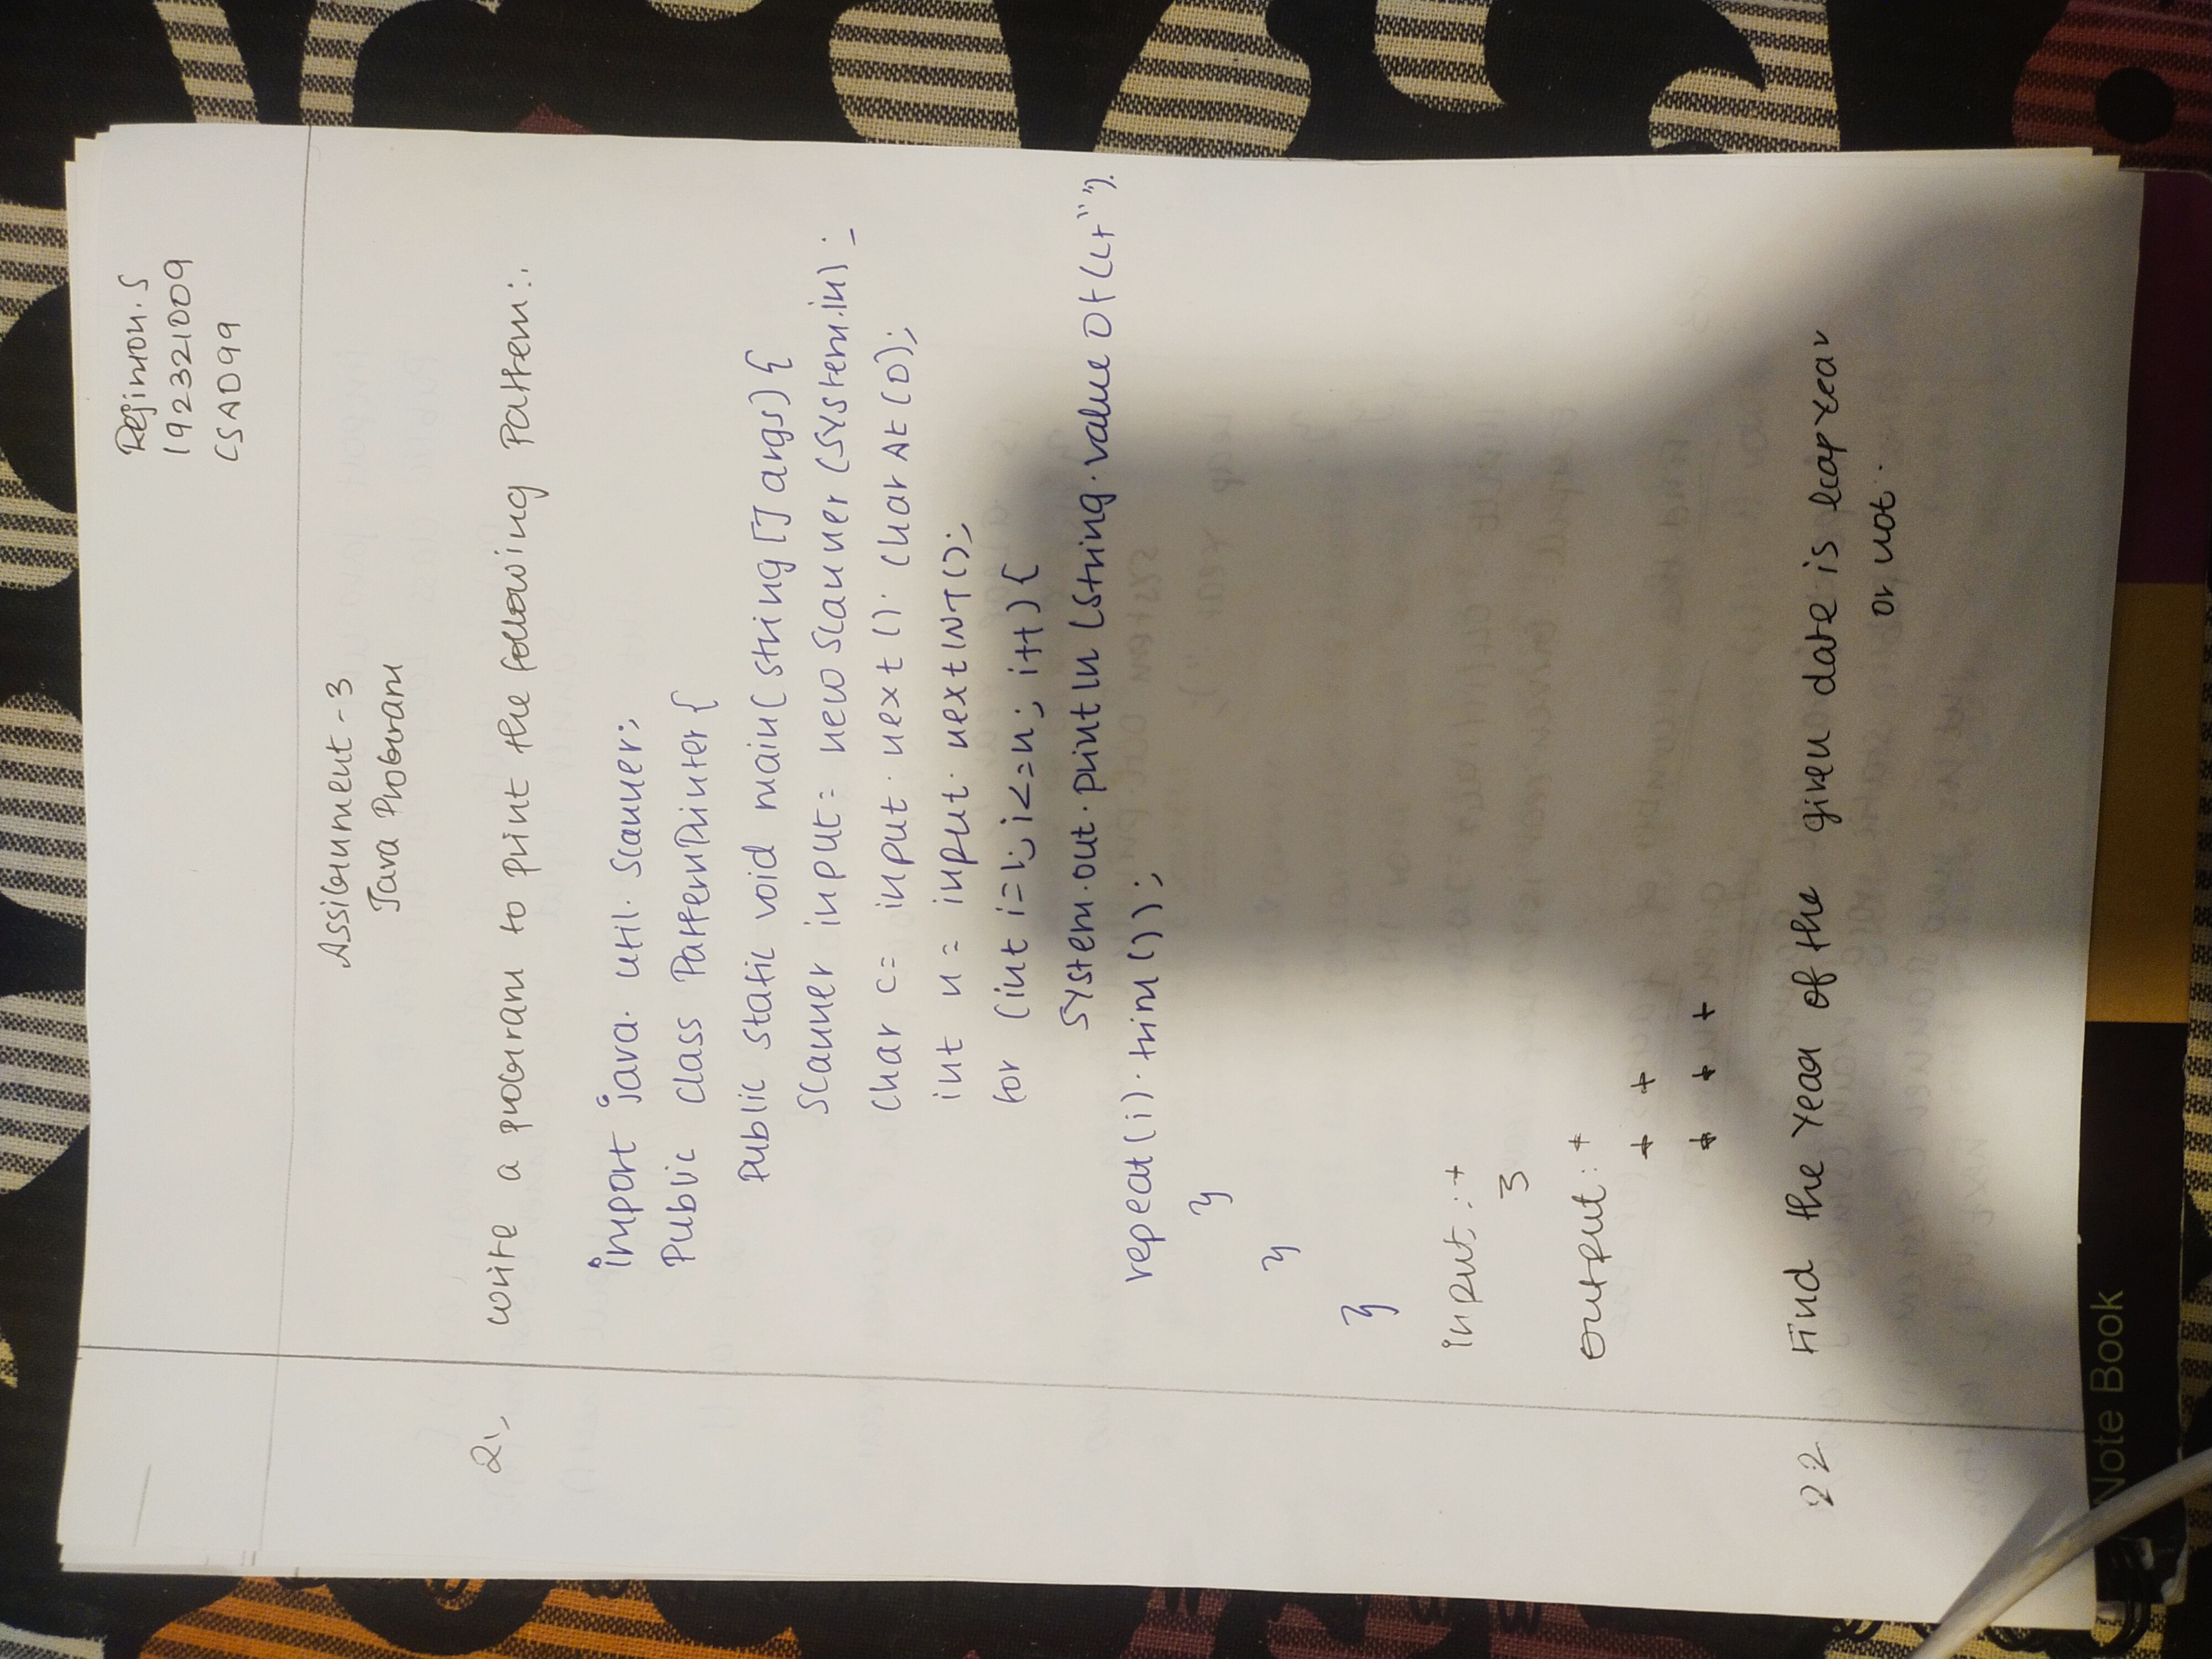 Rejimon. S
192321009
CSA099
Assignment - 3
Java Program
21, write a program to print the following Pattern:.
import java. util. Scanner;
Public class PatternPrinter {
Public static void main(string [] args) {
Scanner input = new Scanner (System.in) ;
Char c= input. next (). Char At (0);
int n = input. nextINT();
for (int i=1; i<=n; i++) {
System.out.println (String.value Of (c+" ").
repeat(i).trim());
}
}
}
input: +
3
output: +
+ +
+ + +
22 Find the Year of the given date is leap year
or not.
Note Book